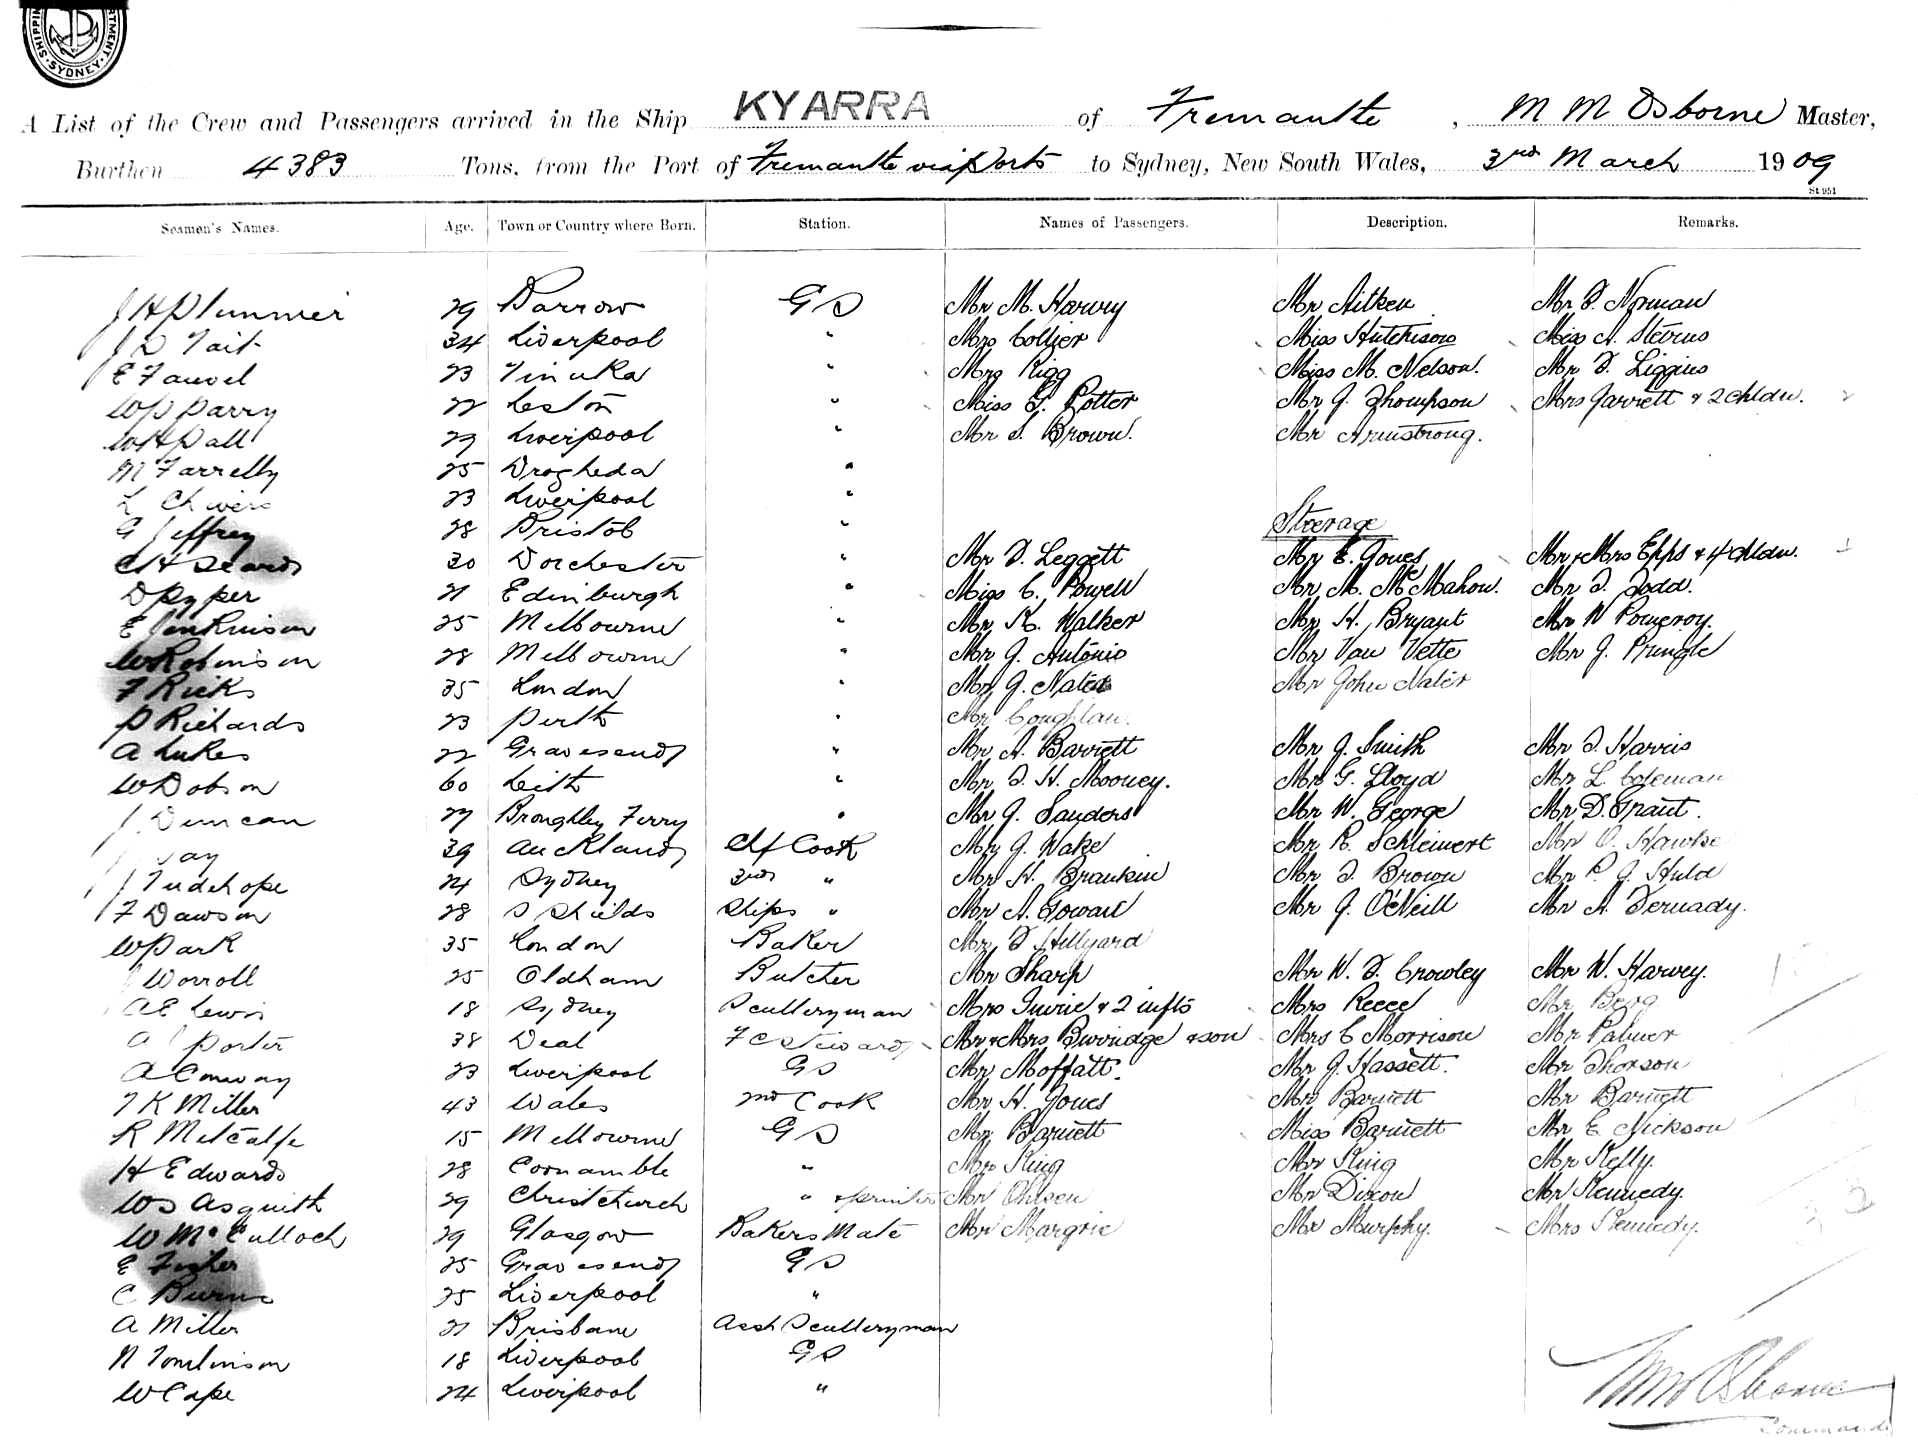 SHIPPING DEPARTMENT SYDNEY
A List of the Crew and Passengers arrived in the Ship KYARRA of Fremantle, M M Osborne Master,
Burthen 4383 Tons, from the Port of Fremantle via Ports to Sydney, New South Wales, 3rd March 1909
St 951
Seamen's Names. Age. Town or Country where Born. Station. Names of Passengers. Description. Remarks.
J H Plummer 29 Barrow G S Mr M. Harvey Mr Aitken Mr T. Norman
J D Tait 34 Liverpool " Mrs Collier Miss Hutchison Miss A. Stevens
E Fauvel 23 Tinuka " Mrs Rigg Miss M. Nelson. Mr T. Liggins
W P Parry 22 Leston " Miss G. Potter Mr J. Thompson Mrs Jarrett & 2 Chldn.
W H Pall 29 Liverpool " Mr S. Brown. Mr Armstrong.
M Farrelly 25 Drogheda "
L Chivers 23 Liverpool "
G Jeffrey 28 Bristol " Steerage
C H Seards 30 Dorchester " Mr T. Leggett Mr E. Jones Mr & Mrs Epps & 4 Chldn.
D Pyper 21 Edinburgh " Miss C. Powell Mr M. McMahon. Mr T. Todd.
E Jenkinson 25 Melbourne " Mr K. Walker Mr H. Bryant Mr W Pomeroy.
W Robinson 28 Melbourne " Mr J. Antonio Mr Van Vette Mr J. Pringle
F Ricks 35 London " Mr J. Nater Mr John Nater
P Richards 23 Perth " Mr Coughlan.
A Lukes 22 Gravesend " Mr A. Barrett Mr J. Smith Mr T. Harris
W Dobson 60 Leith " Mr T. H. Mooney. Mr G. Lloyd Mr L. Coleman
J Duncan 27 Broughley Ferry " Mr J. Sanders Mr W. George Mr D. Grant.
J Jay 39 Auckland Chf Cook Mr J. Wake Mr R. Schleinert Mr O. Hawke
J Tudehope 24 Sydney 3rd " Mr H. Brankin Mr T. Brown Mr P. J. Huld
F Dawson 28 S Shields Ships " Mr A. Gowan Mr J. O'Neill Mr A. Dernady.
W Park 35 London Baker Mr T Hillyard
J Worroll 25 Oldham Butcher Mr Sharp Mr W. T. Crowley Mr W. Harvey.
A E Lewis 18 Sydney Sculleryman Mrs Imrie & 2 infts Mrs Reece Mr Berg
A J Porter 38 Deal F C Steward Mr & Mrs Burridge & son Mrs C Morrison Mr Palmer
A Conway 23 Liverpool G S Mr Moffatt. Mr J. Hassett. Mr Thorson
T K Miller 43 Wales 2nd Cook Mr H. Jones Mr Barnett Mr Barnett
R Metcalfe 15 Melbourne G S Mr Barnett Miss Barnett Mr E. Nickson
H Edwards 28 Coonamble " Mr King Mr King Mr Kelly.
W S Asquith 29 Christchurch " & printer Mr Ohlsen Mr Dixon Mr Kennedy.
W McCulloch 29 Glasgow Bakers Mate Mr Margrie Mr Murphy. Mrs Kennedy.
E Fisher 25 Gravesend G S
C Burne 25 Liverpool "
A Miller 21 Brisbane Asst Sculleryman
N Tomlinson 18 Liverpool G S
W Cape 24 Liverpool "
M M Osborne
Commander